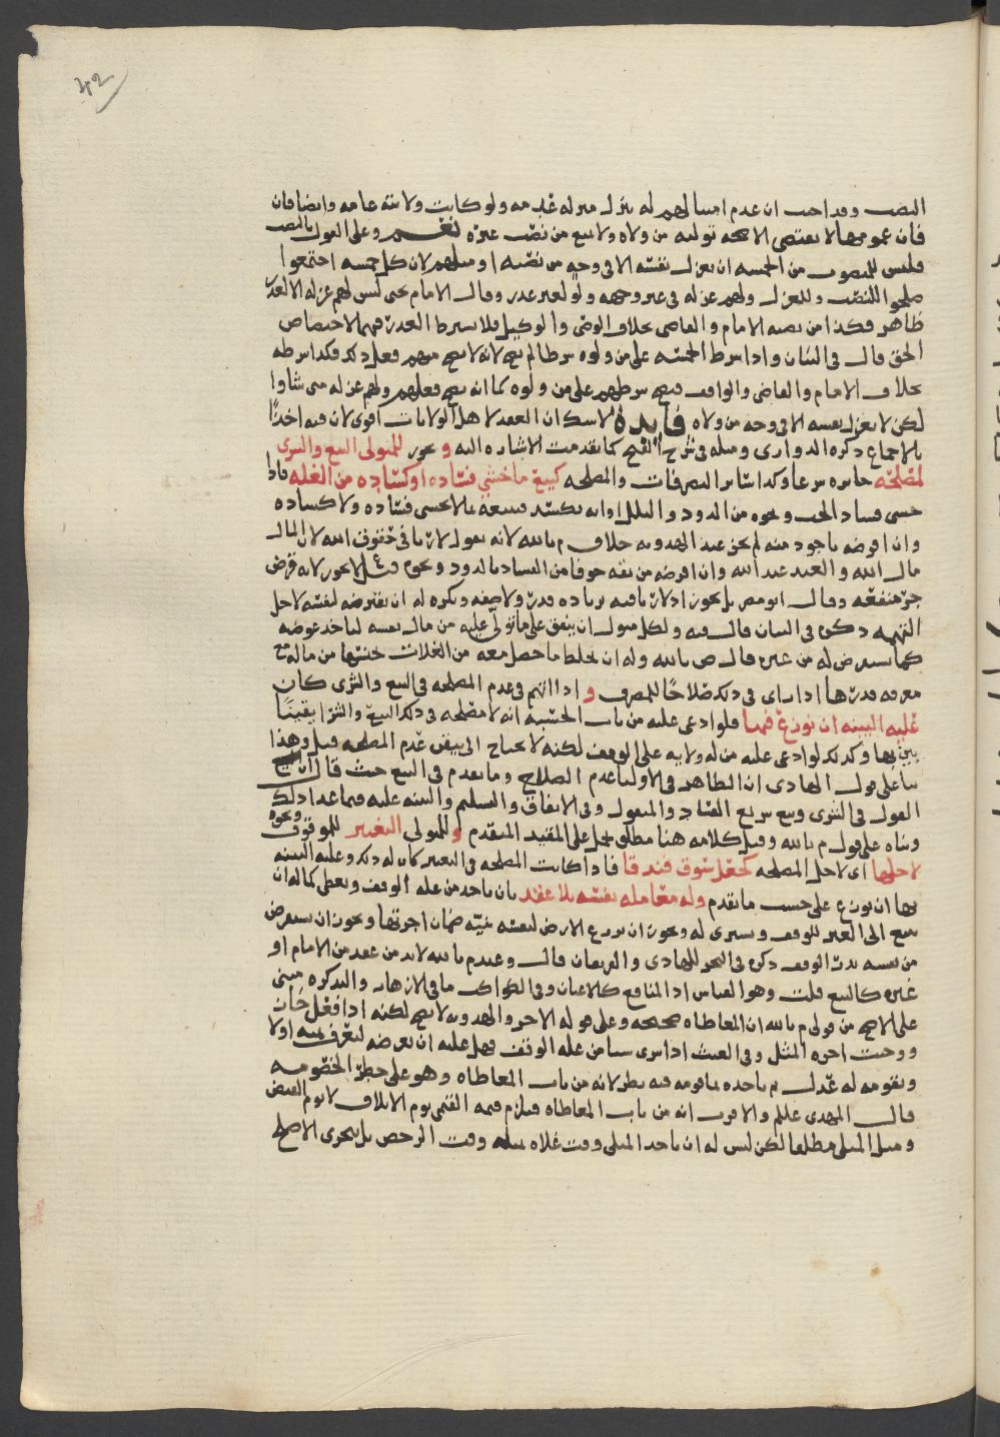 42
النصب وقد اجيب ان عدم امتثالهم له ينزل منزله غيرمه ولو كانت ولايته عامه وايضا فان
فان عمومها لا يقتضي الا صحه توليه من ولاه ولا يمنع من نصب غيره نعم وعلى القول بالنصب
فليس للمنصوب من الخمسه ان يعزل نفسه الا في وجه من نصبه او مثلهم لان كل خمسه اجتمعوا
صلحوا للنصب وللعزل ولهم عزله في غير وجهه ولو لغير عذر وقال الامام يحيى ليس لهم عزله الا لعذر
ظاهر فكذا من نصبه الامام والقاضي بخلاف الوصي والوكيل فلا يشترط العذر فيهما لاختصاص
الحق قال في البيان واذا شرط الخمسه على من ولوه شرطا لم يصح لانه لا يصح منهم فعل ذلك فكذا شرطه
بخلاف الامام والقاضي والواقف فيصح شرطهم على من ولوه كما انه يصح فعلهم ولهم عزله متى شاوا
لكن لا يعزل نفسه الا في وجه من ولاه فايده لا شك ان العقد لاهل الولايات اقوى لان فيه اخذا
بالاجماع ذكره الدواري ومثله في شرح الفتح كما تقدمت الاشاره اليه و يجوز للمتولي البيع والشرى
لمصلحه جايزه شرعا وكذا سائر التصرفات والمصلحه كبيع ما خشي فساده او كساده من الغله فاذا
خشي فساد الحب ونحوه من الدود والبلل او انه يكسد فيبيعه بما لا يخشى فساده ولا كساده
وان اقرضه باجود منه لم يجز عند الهدويه خلاف م بالله لانه يقول لا ربا في حقوق الله لان المال
مال الله والعبد عبد الله وان اقرضه من ثقه خوفا من الفساد بالدود ونحوه فقيل لا يجوز لانه قرض
جر منفعه وقال ابو مضر بل يجوز اذ لا ربا فيه بزياده قدر ولا صفه ويكره له ان يقترضه لنفسه لاجل
التهمه ذكره في البيان قال فيه ولكل متول ان ينفق على ما تولى عليه من مال نفسه ليأخذ عوضه
كما يستقرض له من غيره قال ص بالله وله ان يخلط ما حصل معه من الغلات جنسها من ماله مع
معرفه قدرها اذا راى في ذلك صلاحا للمصرف و اذا اتهم في عدم المصلحه في البيع والشرى كان
عليه البينه ان نوزع فيها فلو ادعى عليه من باب الحسبه انه لا مصلحه في ذلك البيع والشرا يقينا
بين بها وكذلك لو ادعى عليه من له ولايه على الوقف لكنه لا يحتاج الى يقين عدم المصلحه قيل وهذا
بنا على قول الهادي ان الظاهر في الاوليا عدم الصلاح وما تقدم في البيع حيث قال ان
القول في الشرى وبيع سريع الفساد والمنقول وفي الانفاق والتسليم والبينه عليه فيما عدا ذلك
وبناه على قول م بالله وقيل كلامه هنا مطلق يحمل على المقيد المتقدم و للمتولي التغيير للموقوف ونحوه
لاجلها اي لاجل المصلحه كجعل سوق فندقا فاذا كانت المصلحه في التغيير كان له ذلك وعليه البينه
بها ان نوزع على حسب ما تقدم وله معامله نفسه بلا عقد بان ياخذ من غله الوقف ويعطي كما له ان
يبيع الى الغير للوقف ويشرى له ويجوز ان يزرع الارض لنفسه بنيه ضمان اجرتها ويجوز ان يستقرض
من نفسه بذر الوقف ذكره في البحر للهادي والفريقان قال وعند م بالله لا بد من عقد من الامام او
غيره كالبيع قلت وهو القياس اذ المنافع كالاعيان وفي الكواكب ما في الازهار والتذكره مبني
على الاصح من قولي م بالله ان المعاطاه صحيحه وعلى قوله الاخر والهدويه لا يصح لكنه اذا فعل جاز
ووجبت اجره المثل وفي الغيث اذا شرى شيا من غله الوقف فهل عليه ان يعرضه ليعرف ثمنه اولا
ويقومه له عدل ثم ياخذه بما قومه فيه نظر لانه من باب المعاطاه وهو على خطر الخصومه
قال المهدي علم والاقرب انه من باب المعاطاه فيلزم قيمه القيمي يوم الاتلاف لا يوم القبض
ومثل المثلي مطلقا لكن ليس له ان ياخذ المثلي وقت غلاه بمثله وقت الرخص بل يتحرى الاصلح